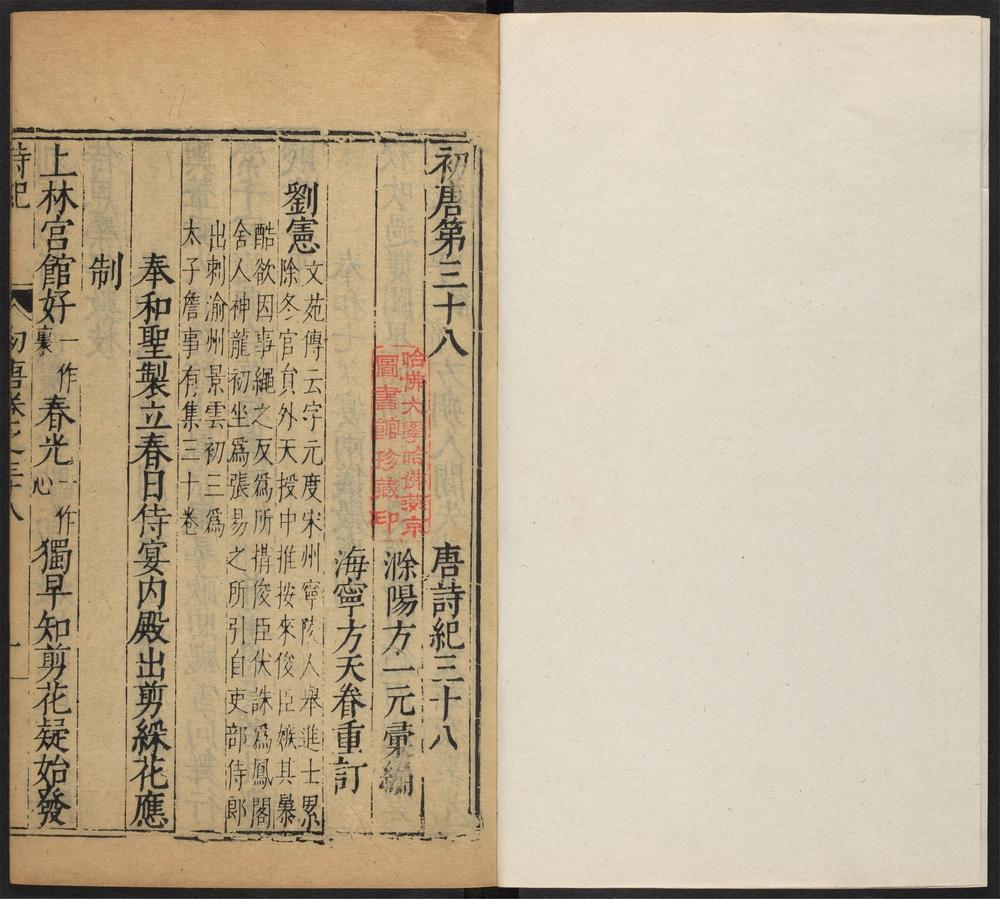 初唐第三十八 唐詩紀三十八
滁陽方一元彙編
海寧方天眷重訂
劉憲
文苑傳云字元度宋州寧陵人舉進士累
除冬官貟外天授中推按來俊臣嫉其暴
酷欲因事繩之反爲所搆俊臣伏誅爲鳳閣
舍人神龍初坐爲張易之所引自吏部侍郎
出刺渝州景雲初三爲
太子詹事有集三十卷
奉和聖製立春日侍宴内殿出剪綵花應
制
上林宮館好一作裏春光一作心獨早知剪花疑始發
詩紀 初唐卷之三十八 一
哈佛大學哈佛燕京
圖書館珍藏印